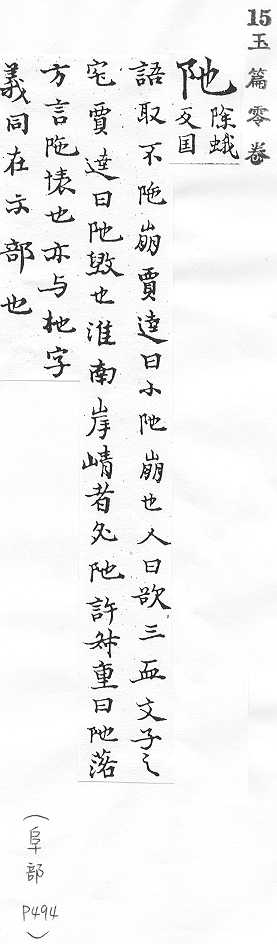 15玉篇零卷
阤除蛾
反国
語取不陁崩賈逵曰小阤崩也又曰欲三皿文子之
宅賈逵曰阤毀也淮南岸崝者必阤許叔重曰阤落
方言陁壊也亦与杝字
義同在示部也
(阜部 P494)